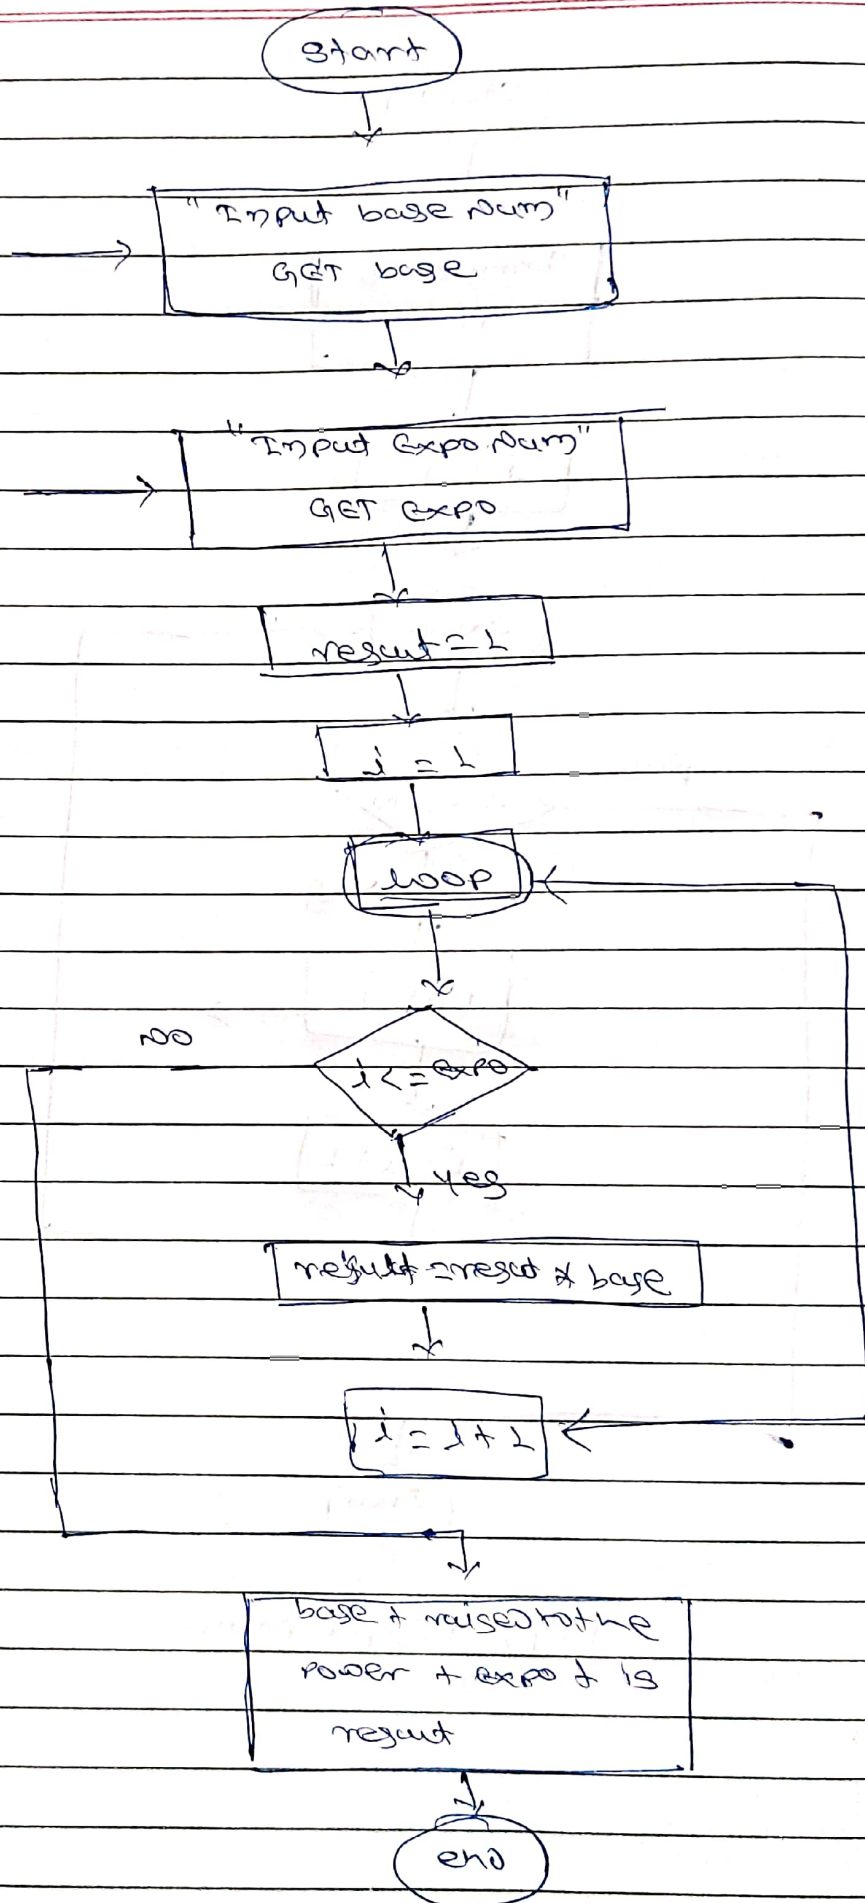 Start
"Input base Num"
GET base
"Input Expo Num"
GET Expo
result = 1
i = 1
loop
NO
i <= Expo
yes
result = result * base
i = i + 1
base + raised to the
power + expo + is
result
end